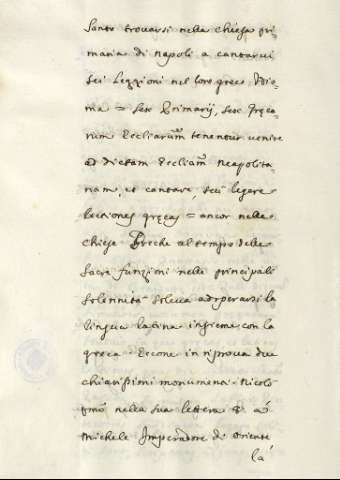 Santo trovarsi nella chiesa pri=
maria di napoli a cantarvi
sei Lezzioni nel loro greco Idio=
ma = Sex Primarij, sex Gręca=
rum Eccliarum tenentur venire
ad dictam Eccliam Neapolita=
nam, et cantare, seu legere
lectiones gręcas = ancor nelle
chiese Greche al tempo delle
sacre funzioni nelle principali
solennità soleva adoperarsi la
lingua latina insieme con la
greca. Eccone in riprova due
chiarissimi monumenti. Nicolò
primo nella sua lettera 8 a
Michele Imperadore di Oriente
la